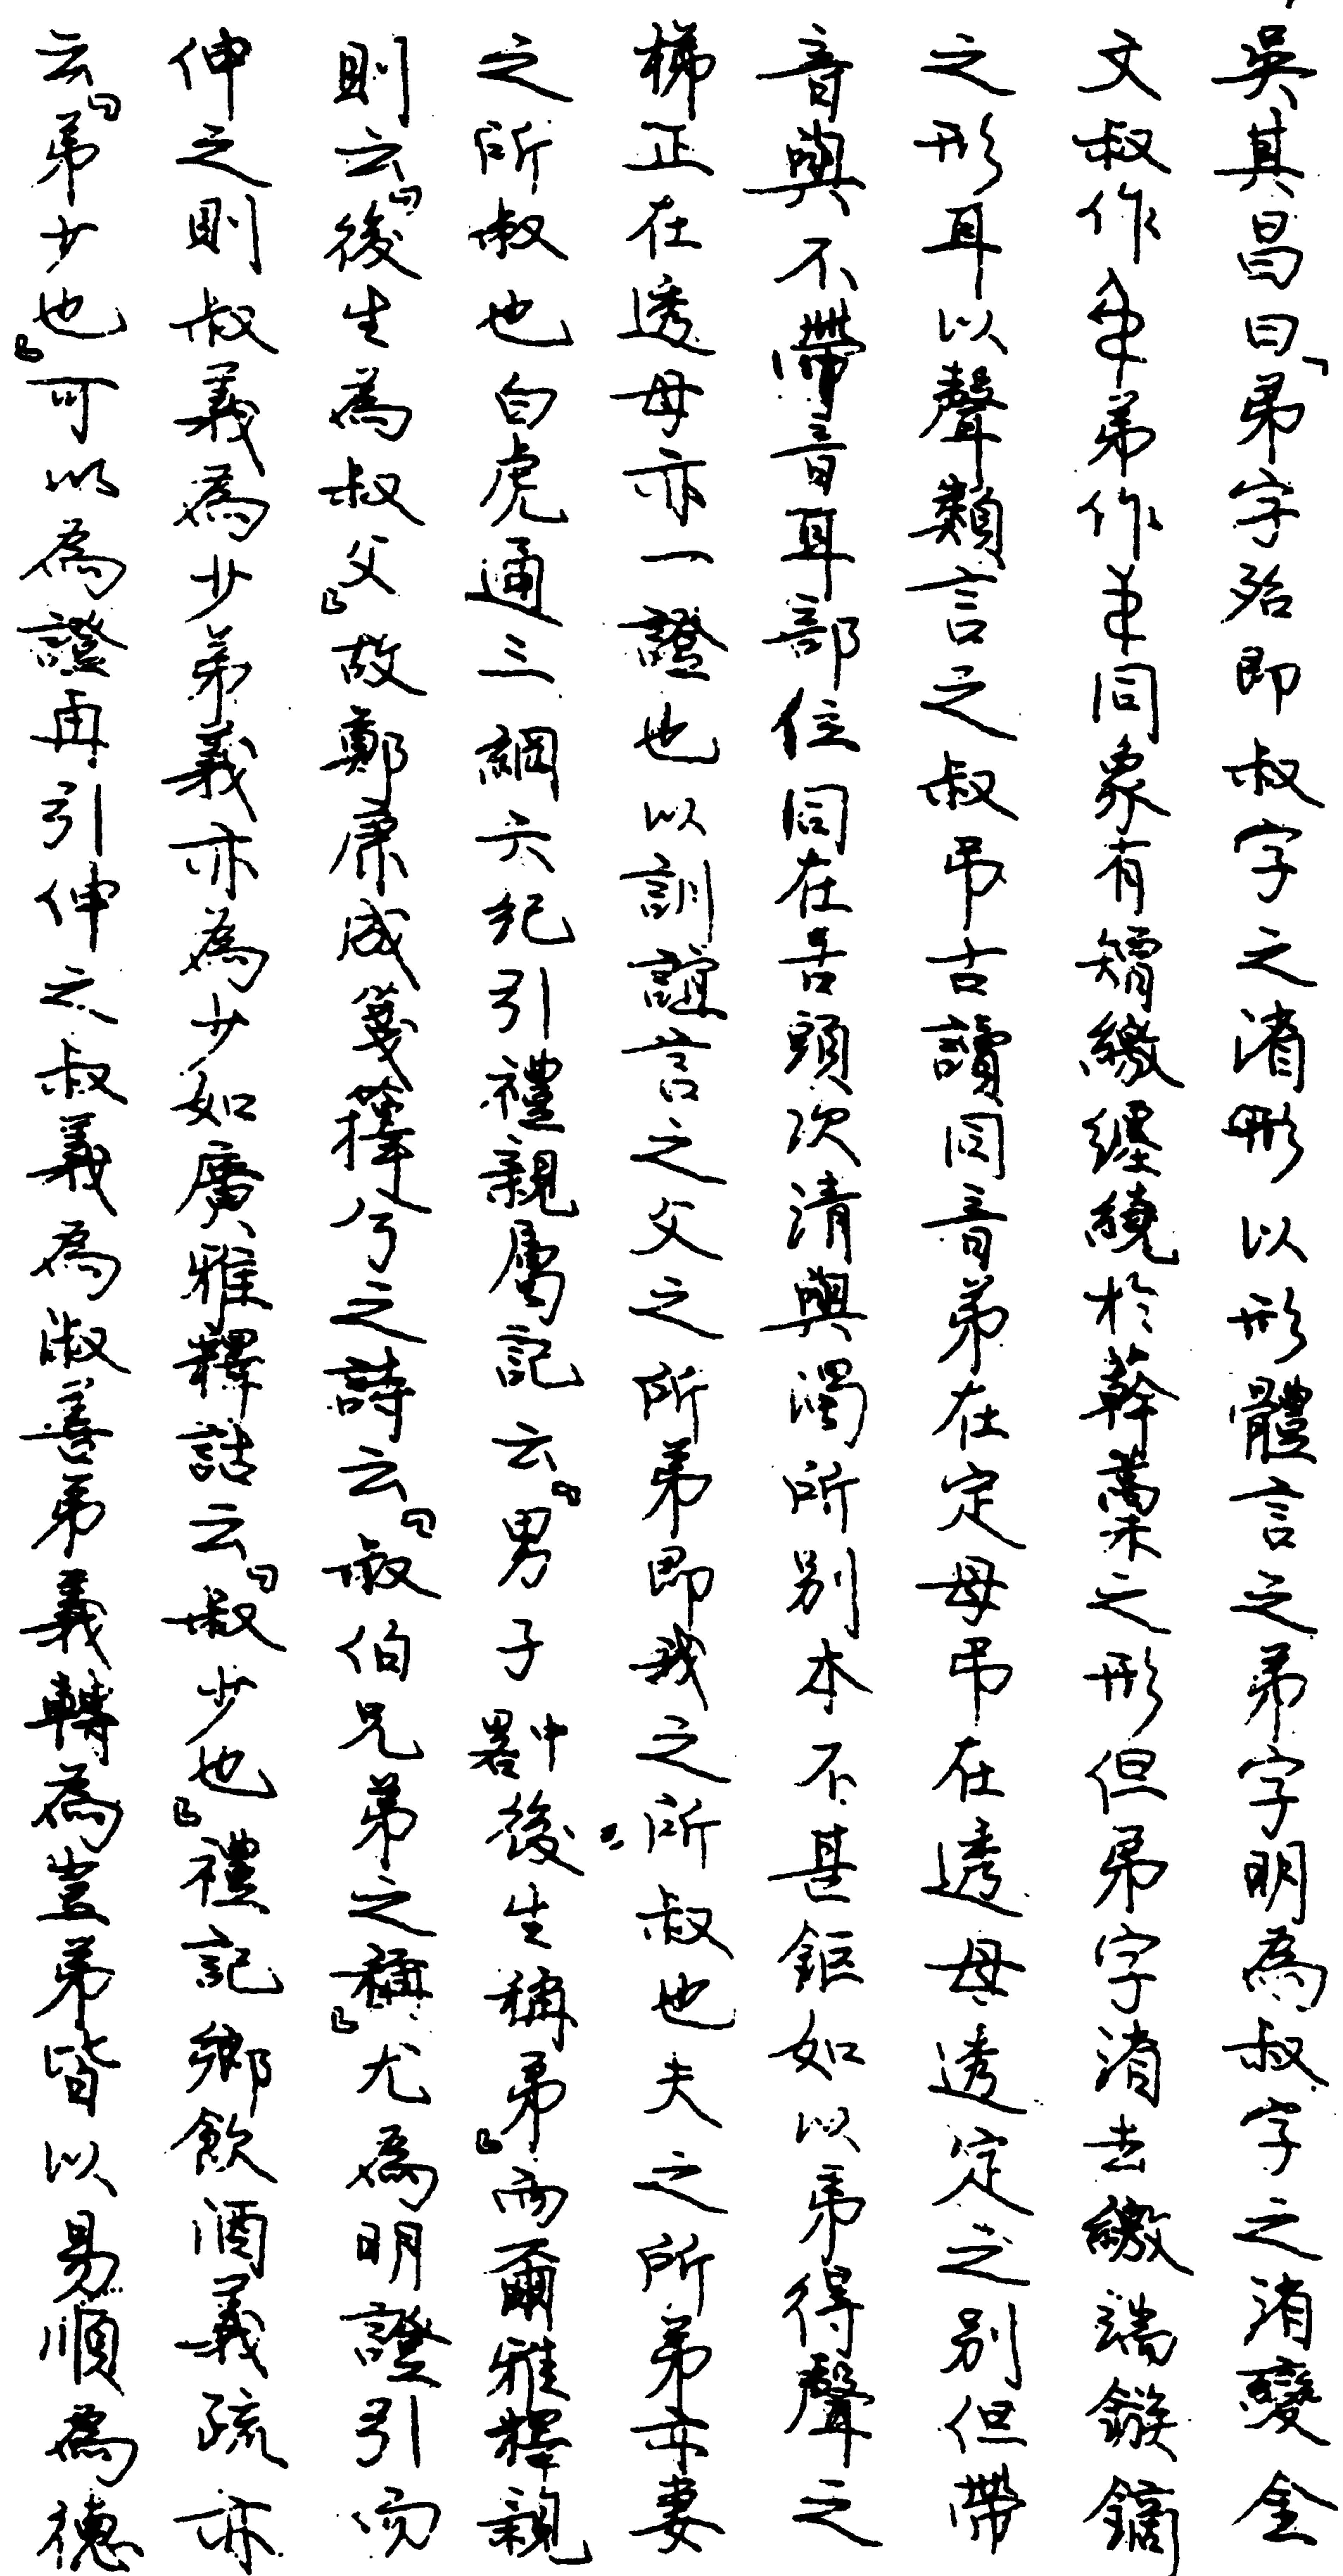 吳其昌曰「弟字殆即叔字之渻形以形體言之弟字明為叔字之渻變金
文叔作弟作同象有矰繳纏繞於榦槀之形但弟字渻去繳端鏃鏑
之形耳以聲類言之叔弔古讀同音弟在定母弔在透母透定之別但帶
音與不帶音耳部位同在舌頭次清與濁所別本不甚鉅如以弟得聲之
梯正在透母亦一證也以訓誼言之父之所弟即我之所叔也夫之所弟亦妻
之所叔也白虎通三綱六紀引禮親屬記云『男子中畧後生稱弟』而爾雅釋親
則云『後生為叔父』故鄭康成箋蘀兮之詩云『叔伯兄弟之稱』尤為明證引而
伸之則叔義為少弟義亦為少如廣雅釋詁云『叔少也』禮記鄉飲酒義疏亦
云『弟少也』可以為證再引伸之叔義為淑善弟義轉為豈弟皆以易順為德